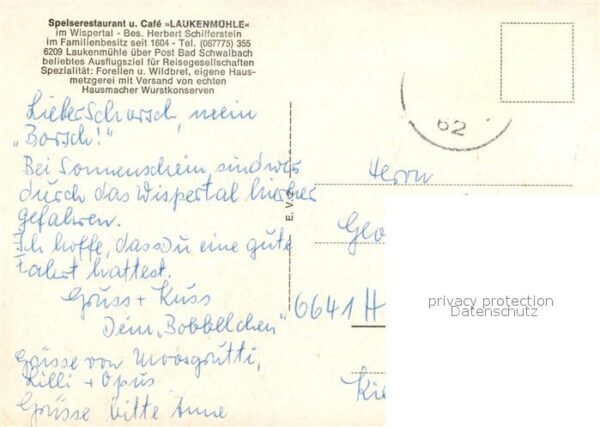 Speiserestaurant u. Café »LAUKENMÜHLE«
im Wispertal - Bes. Herbert Schifferstein
im Familienbesitz seit 1604 - Tel. (067775) 355
6209 Laukenmühle über Post Bad Schwalbach
beliebtes Ausflugsziel für Reisegesellschaften
Spezialität: Forellen u. Wildbret, eigene Haus-
metzgerei mit Versand von echten
Hausmacher Wurstkonserven
Lieber Schorsch, mein
„Borsch!"
Bei Sonnenschein sind wir
durch das Wispertal hierher
gefahren.
Ich hoffe, dass Du eine gute
Fahrt hattest.
Gruss + Kuss
Dein „Bobbelchen"
Grüsse von
Lilli + Opus
Grüsse bitte Anne
E. V.
62
Herrn
Geo
6641 H
privacy protection
Datenschutz